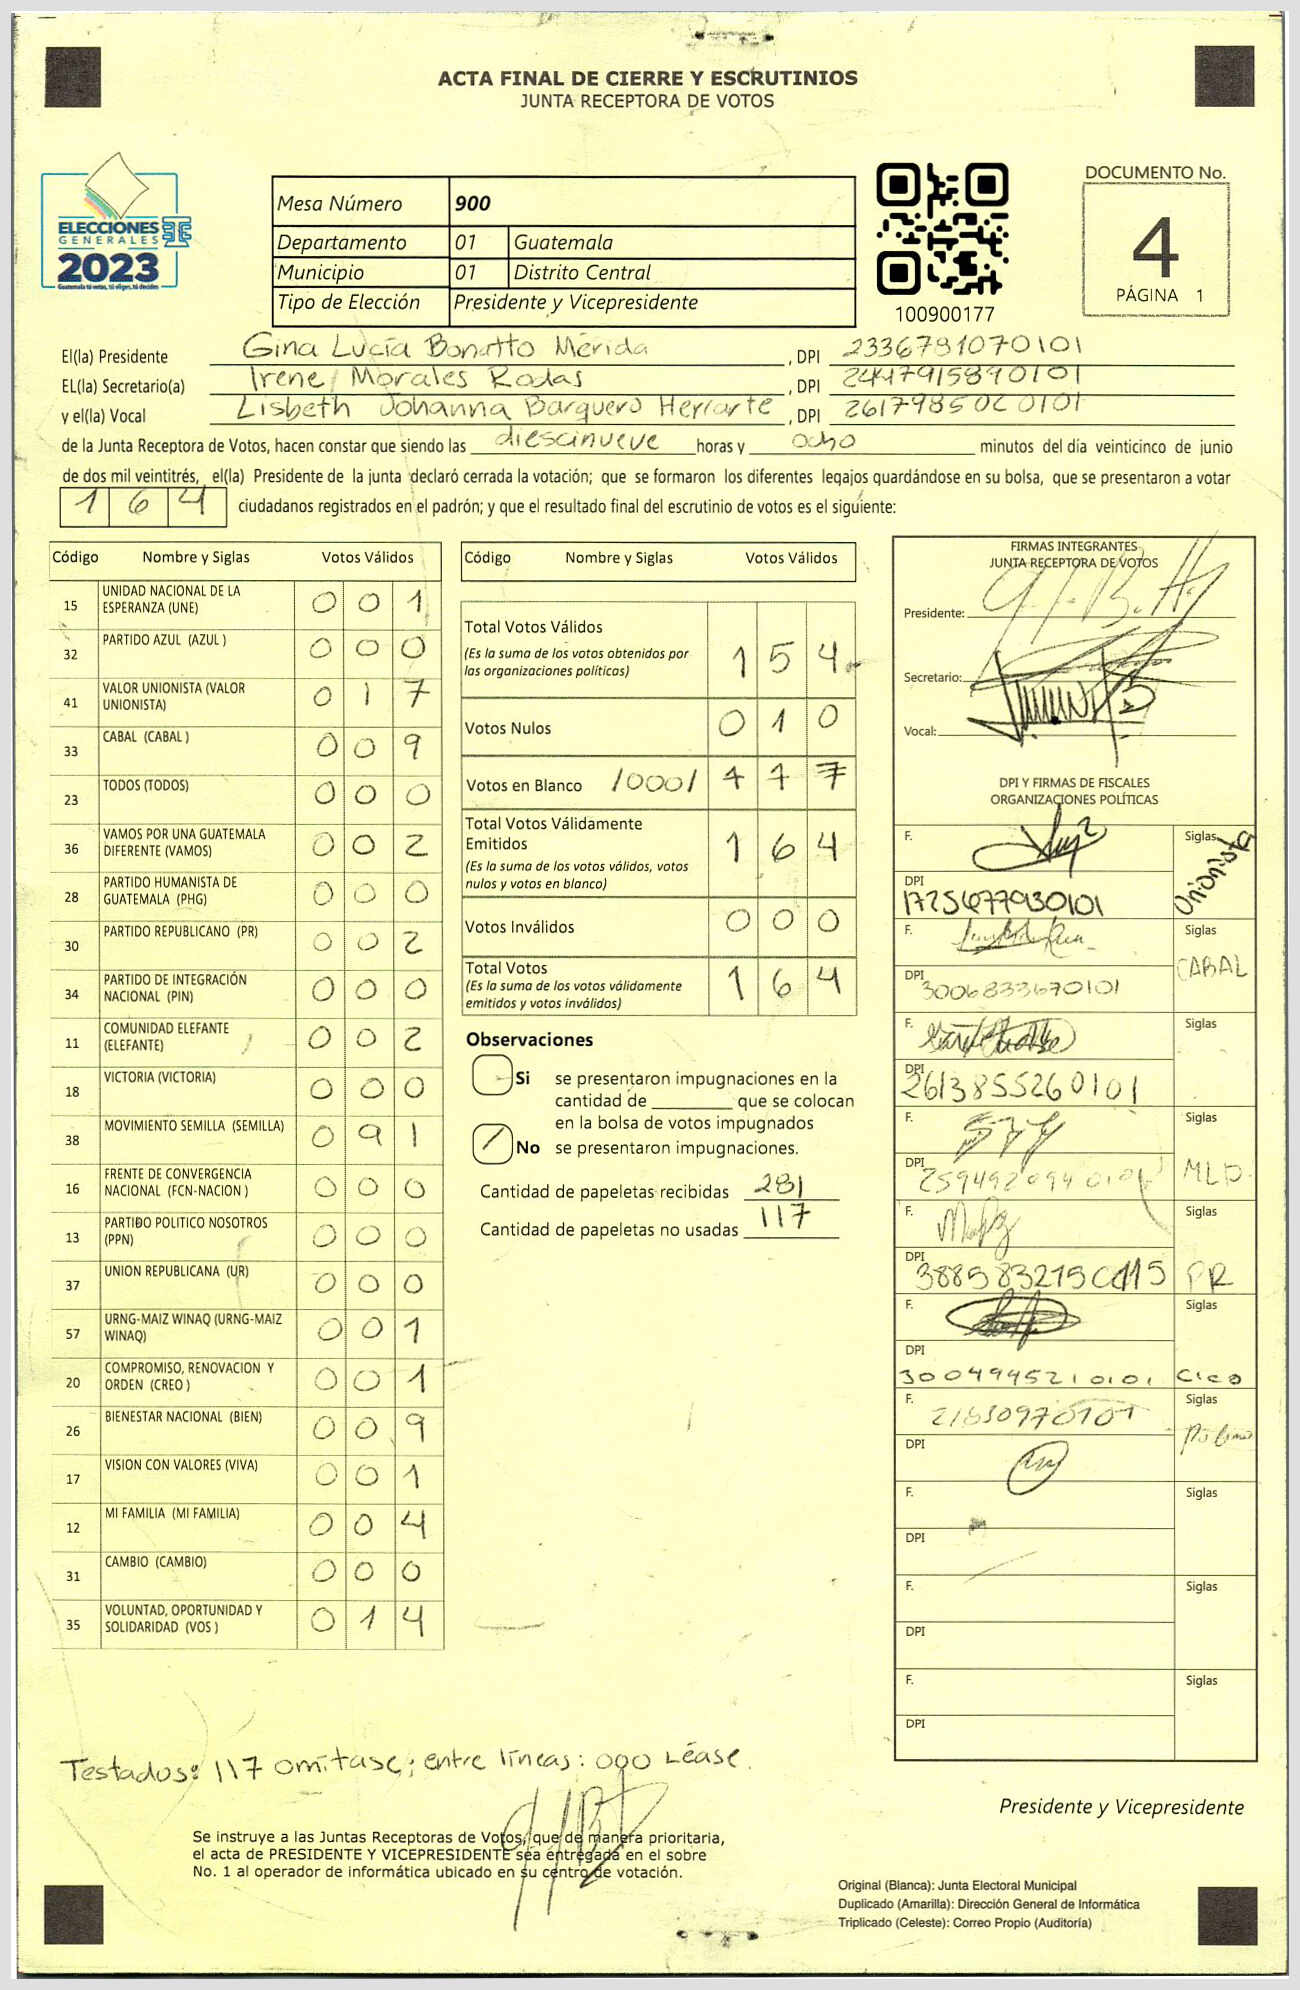 ACTA FINAL DE CIERRE Y ESCRUTINIOS
JUNTA RECEPTORA DE VOTOS
ELECCIONES
GENERALES
2023
Guatemala tú votas, tú eliges, tú decides
Mesa Número 900
Departamento 01 Guatemala
Municipio 01 Distrito Central
Tipo de Elección Presidente y Vicepresidente
100900177
DOCUMENTO No.
4
PÁGINA 1
El(la) Presidente Gina Lucía Bonatto Mérida , DPI 2336781070101
EL(la) Secretario(a) Irene Morales Rodas , DPI 2447915890101
y el(la) Vocal Lisbeth Johanna Barquero Heriarte , DPI 2617985020101
de la Junta Receptora de Votos, hacen constar que siendo las diescinueve horas y ocho minutos del día veinticinco de junio
de dos mil veintitrés, el(la) Presidente de la junta declaró cerrada la votación; que se formaron los diferentes legajos guardándose en su bolsa, que se presentaron a votar
1 6 4 ciudadanos registrados en el padrón; y que el resultado final del escrutinio de votos es el siguiente:
Código Nombre y Siglas Votos Válidos
15 UNIDAD NACIONAL DE LA ESPERANZA (UNE) 0 0 1
32 PARTIDO AZUL (AZUL ) 0 0 0
41 VALOR UNIONISTA (VALOR UNIONISTA) 0 1 7
33 CABAL (CABAL ) 0 0 9
23 TODOS (TODOS) 0 0 0
36 VAMOS POR UNA GUATEMALA DIFERENTE (VAMOS) 0 0 2
28 PARTIDO HUMANISTA DE GUATEMALA (PHG) 0 0 0
30 PARTIDO REPUBLICANO (PR) 0 0 2
34 PARTIDO DE INTEGRACIÓN NACIONAL (PIN) 0 0 0
11 COMUNIDAD ELEFANTE (ELEFANTE) 0 0 2
18 VICTORIA (VICTORIA) 0 0 0
38 MOVIMIENTO SEMILLA (SEMILLA) 0 9 1
16 FRENTE DE CONVERGENCIA NACIONAL (FCN-NACION ) 0 0 0
13 PARTIDO POLITICO NOSOTROS (PPN) 0 0 0
37 UNION REPUBLICANA (UR) 0 0 0
57 URNG-MAIZ WINAQ (URNG-MAIZ WINAQ) 0 0 1
20 COMPROMISO, RENOVACION Y ORDEN (CREO ) 0 0 1
26 BIENESTAR NACIONAL (BIEN) 0 0 9
17 VISION CON VALORES (VIVA) 0 0 1
12 MI FAMILIA (MI FAMILIA) 0 0 4
31 CAMBIO (CAMBIO) 0 0 0
35 VOLUNTAD, OPORTUNIDAD Y SOLIDARIDAD (VOS ) 0 1 4
Código Nombre y Siglas Votos Válidos
Total Votos Válidos 1 5 4
(Es la suma de los votos obtenidos por
las organizaciones políticas)
Votos Nulos 0 1 0
Votos en Blanco /000/ 1 1 7
Total Votos Válidamente
Emitidos 1 6 4
(Es la suma de los votos válidos, votos
nulos y votos en blanco)
Votos Inválidos 0 0 0
Total Votos 1 6 4
(Es la suma de los votos válidamente
emitidos y votos inválidos)
Observaciones
Si se presentaron impugnaciones en la
cantidad de ________ que se colocan
en la bolsa de votos impugnados
No se presentaron impugnaciones.
Cantidad de papeletas recibidas 281
Cantidad de papeletas no usadas 117
FIRMAS INTEGRANTES
JUNTA RECEPTORA DE VOTOS
Presidente:
Secretario:
Vocal:
DPI Y FIRMAS DE FISCALES
ORGANIZACIONES POLÍTICAS
F. Siglas Unionista
DPI 1725677930101
F. Siglas CABAL
DPI 3006833670101
F. Siglas
DPI 2613855260101
F. Siglas MLP
DPI
F. Siglas PR
DPI
F. Siglas
DPI 3004994210101
F. Siglas
DPI
F. Siglas
DPI
F. Siglas
DPI
F. Siglas
DPI
Testados: 117 omítase; entre líneas: 000 Léase.
Presidente y Vicepresidente
Se instruye a las Juntas Receptoras de Votos, que de manera prioritaria,
el acta de PRESIDENTE Y VICEPRESIDENTE sea entregada en el sobre
No. 1 al operador de informática ubicado en su centro de votación.
Original (Blanca): Junta Electoral Municipal
Duplicado (Amarilla): Dirección General de Informática
Triplicado (Celeste): Correo Propio (Auditoría)